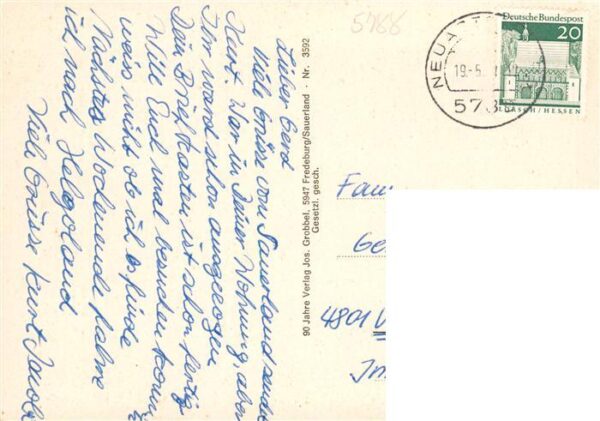 Lieber Gerd
Viele Grüsse vom Sauerland sendet
Kurt. War in Deiner Wohnung, aber
Ihr ward schon ausgezogen
Dein Briefkasten ist schon fertig
Will Euch mal besuchen komm
weis nicht ob ich es finde
Nächstes Wochenende fahre
ich nach Helgoland
Viele Grüsse Kurt
90 Jahre Verlag Jos. Grobbel, 5947 Fredeburg/Sauerland - Nr. 3592
Gesetzl. gesch.
5768
Deutsche Bundespost
20
LORSCH/HESSEN
NEUA
19.-5.
573
Fam
Ge
4801 W
Im